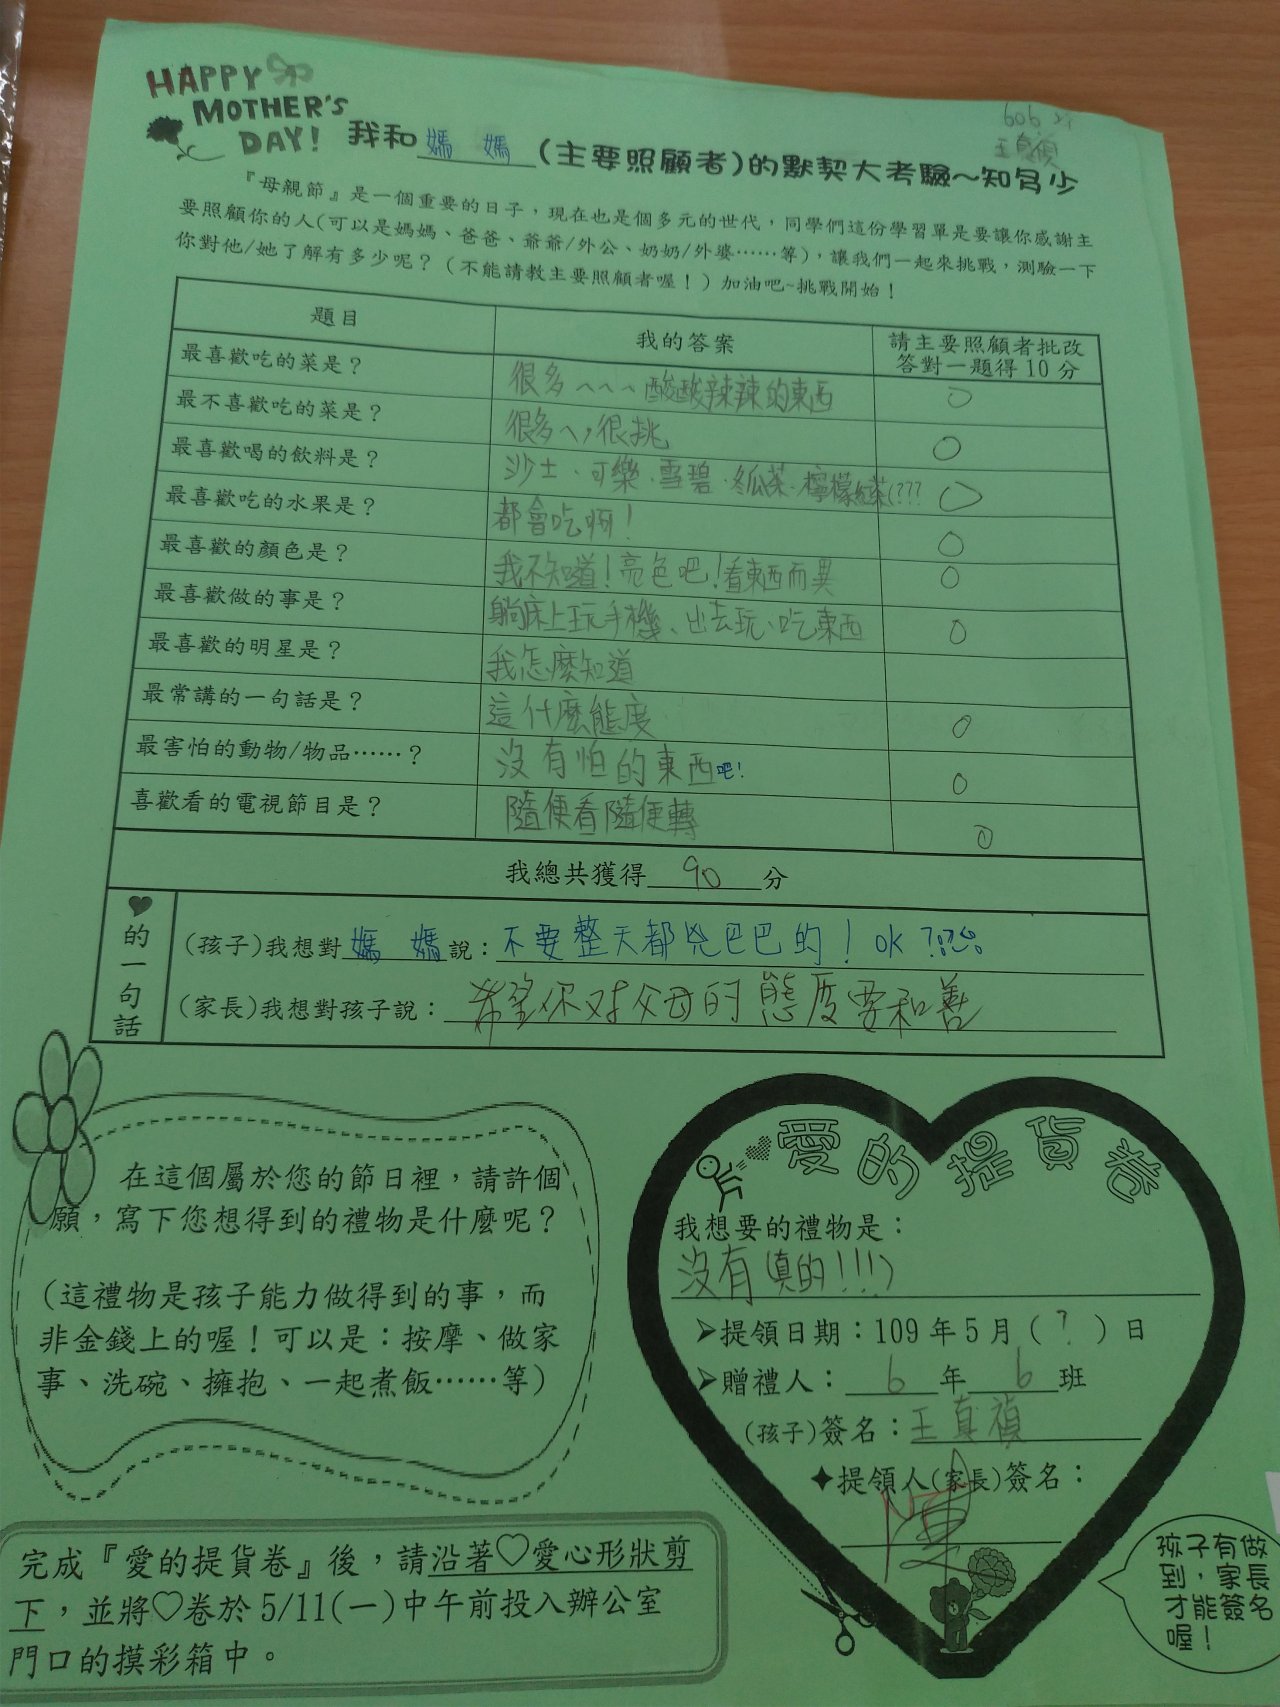 HAPPY
MOTHER'S
DAY!
606
王真禎
我和媽 媽(主要照顧者)的默契大考驗~知多少
『母親節』是一個重要的日子,現在也是個多元的世代,同學們這份學習單是要讓你感謝主
要照顧你的人(可以是媽媽、爸爸、爺爺/外公、奶奶/外婆……等),讓我們一起來挑戰,測驗一下
你對他/她了解有多少呢?(不能請教主要照顧者喔!)加油吧~挑戰開始!
題目 我的答案 請主要照顧者批改
答對一題得10分
最喜歡吃的菜是? 很多ㄟㄟㄟ酸酸辣辣的東西 ○
最不喜歡吃的菜是? 很多ㄟ,很挑 ○
最喜歡喝的飲料是? 沙士、可樂、雪碧、冬瓜茶、檸檬紅茶(??? ○
最喜歡吃的水果是? 都會吃啊! ○
最喜歡的顏色是? 我不知道!亮色吧!看東西而異 ○
最喜歡做的事是? 躺床上玩手機、出去玩、吃東西 ○
最喜歡的明星是? 我怎麼知道
最常講的一句話是? 這什麼態度 ○
最害怕的動物/物品……? 沒有怕的東西吧! ○
喜歡看的電視節目是? 隨便看隨便轉 ○
我總共獲得 90 分
♥的一句話
(孩子)我想對媽 媽說:不要整天都兇巴巴的!OK?
(家長)我想對孩子說:希望你對父母的態度要和善
在這個屬於您的節日裡,請許個
願,寫下您想得到的禮物是什麼呢?
(這禮物是孩子能力做得到的事,而
非金錢上的喔!可以是:按摩、做家
事、洗碗、擁抱、一起煮飯……等)
愛的提貨卷
我想要的禮物是:
沒有(真的!!!)
➢提領日期:109年5月(?)日
➢贈禮人:6年6班
(孩子)簽名:王真禎
✦提領人(家長)簽名:
陳
孩子有做
到,家長
才能簽名
喔!
完成『愛的提貨卷』後,請沿著♡愛心形狀剪
下,並將♡卷於5/11(一)中午前投入辦公室
門口的摸彩箱中。